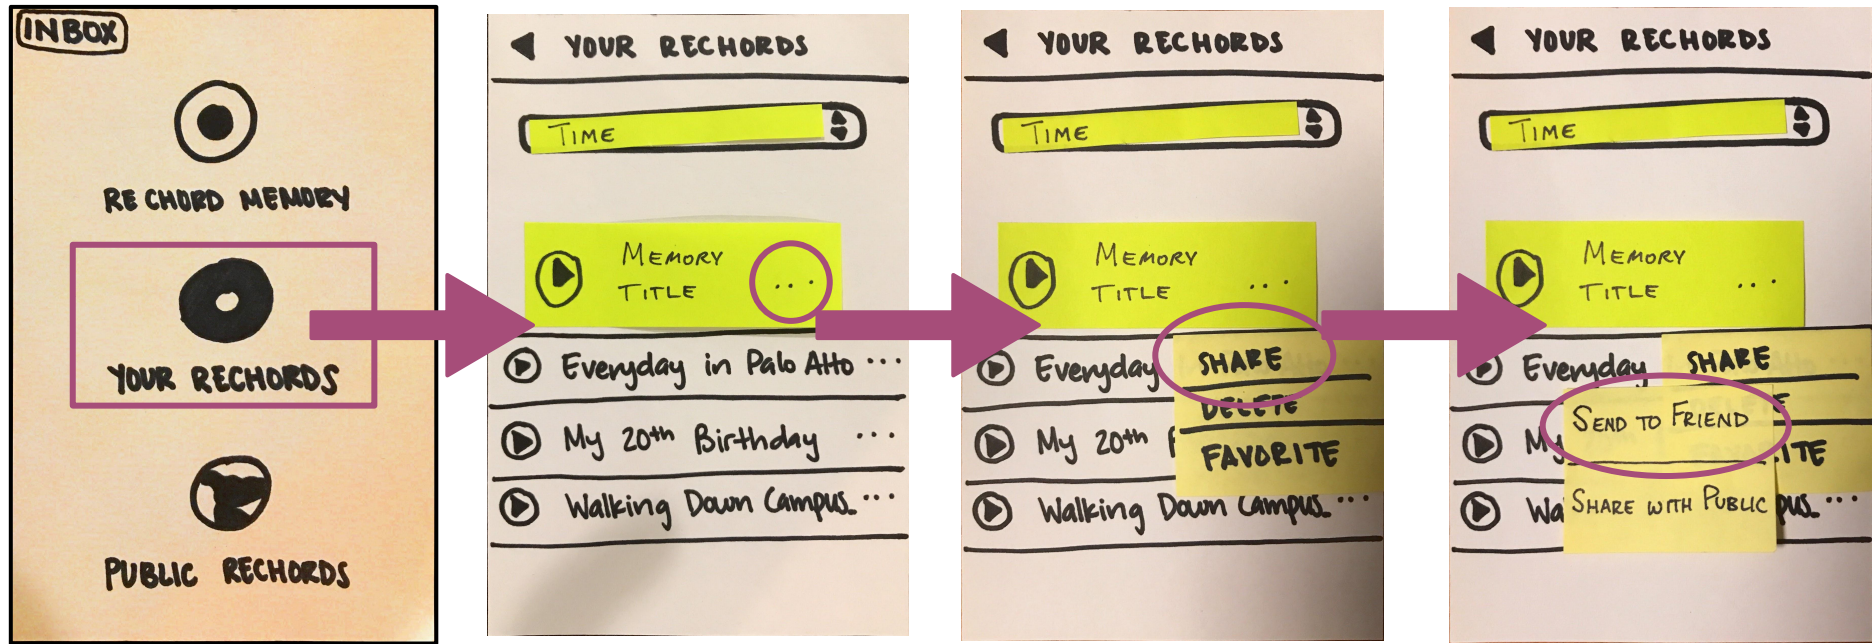 INBOX
RECHORD MEMORY
YOUR RECHORDS
PUBLIC RECHORDS
YOUR RECHORDS
TIME
MEMORY
TITLE ...
Everyday in Palo Alto ...
My 20th Birthday ...
Walking Down Campus ...
YOUR RECHORDS
TIME
MEMORY
TITLE ...
Everyday
SHARE
DELETE
My 20th
FAVORITE
Walking Down Campus ...
YOUR RECHORDS
TIME
MEMORY
TITLE ...
Everyday
SHARE
SEND TO FRIEND
SHARE WITH PUBLIC